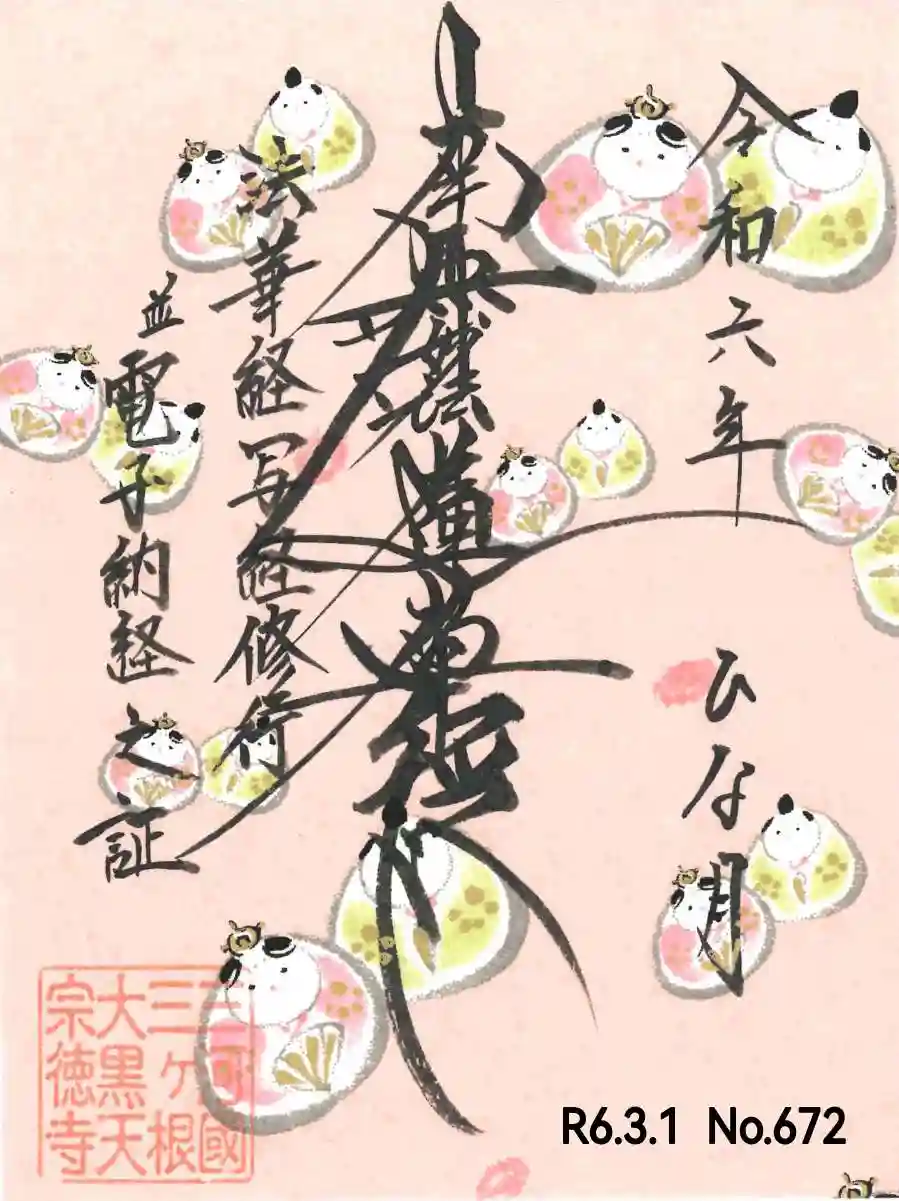 令和六年 ひな月
南無妙法蓮華経
法華経写経修行
並電子納経之証
三河國
三ヶ根
大黒天
宗徳寺
R6.3.1 No.672